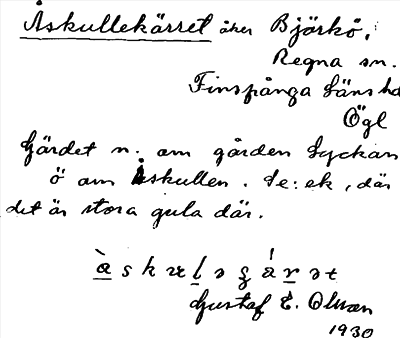 Åskullekärret åker Björkö,
Regna sn.
Finspånga läns hd
Ögl
Gärdet n. om gården Lyckan
ö om Åskullen. Le: ek, där
det är stora gula där.
Gustaf E. Olsson
1930